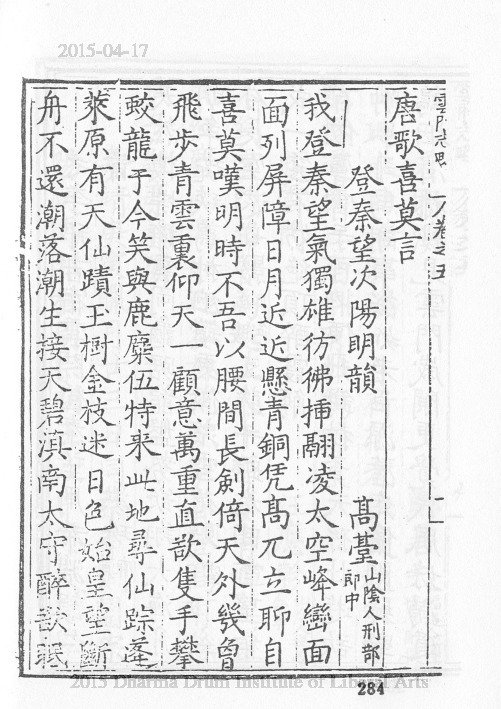 2015-04-17
雲門志畧 卷之五
唐歌喜莫言
登秦望次陽明韻 髙臺山陰人刑部郎中
我登秦望氣獨雄彷彿揷翮凌太空峰巒面
面列屏障日月近近懸青銅凭髙兀立聊自
喜莫嘆明時不吾以腰間長劍倚天外幾曾
飛步青雲裏仰天一顧意萬重直欲隻手攀
蛟龍于今笑與鹿麋伍特来此地尋仙踪蓬
萊原有天仙蹟玉樹金枝迷日色始皇望斷
舟不還潮落潮生接天碧滇南太守醉欲眠
284
2015 Dharma Drum Institute of Liberal Arts